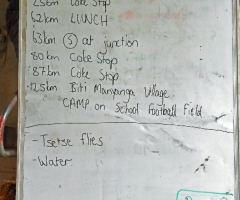 25km Coke Stop
62km LUNCH
63km S at junction
80km Coke Stop
87km Coke Stop
125km Biti Manyanga Village
CAMP on School Football Field
- Tsetse flies
- Water